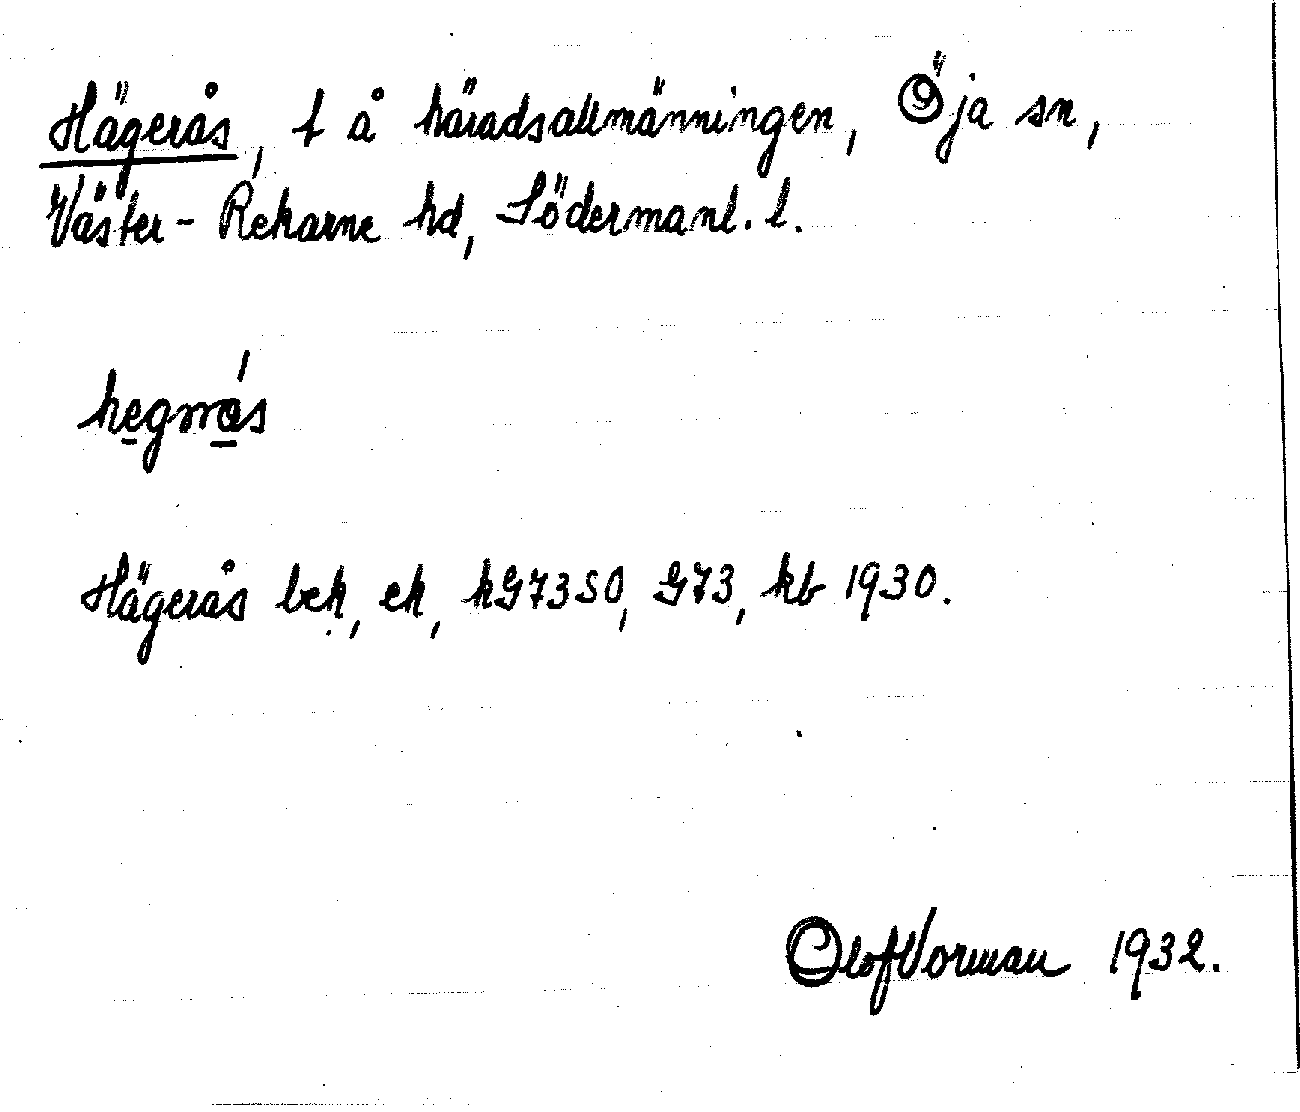 Hägerås, t å häradsallmänningen, Öja sn,
Väster-Rekarne hd, Södermanl. l.
Hägerås bek, ek, kG73SO, G73, kb 1930.
Olof Vorman 1932.